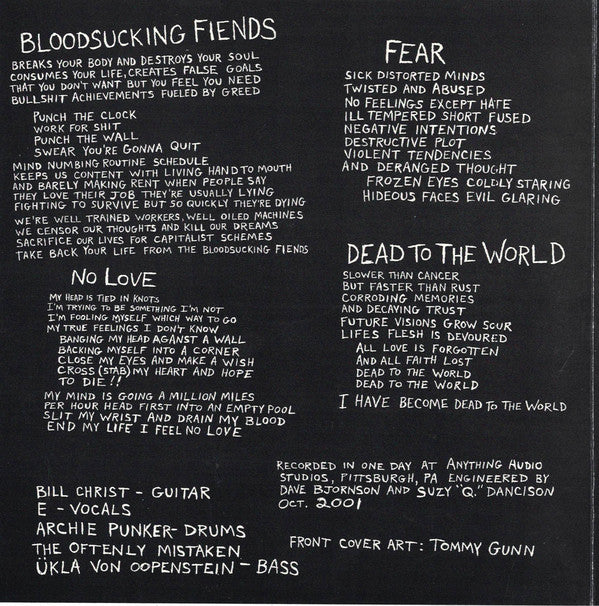 BLOODSUCKING FIENDS
BREAKS YOUR BODY AND DESTROYS YOUR SOUL
CONSUMES YOUR LIFE, CREATES FALSE GOALS
THAT YOU DON'T WANT BUT YOU FEEL YOU NEED
BULLSHIT ACHIEVEMENTS FUELED BY GREED
PUNCH THE CLOCK
WORK FOR SHIT
PUNCH THE WALL
SWEAR YOU'RE GONNA QUIT
MIND NUMBING ROUTINE SCHEDULE
KEEPS US CONTENT WITH LIVING HAND TO MOUTH
AND BARELY MAKING RENT WHEN PEOPLE SAY
THEY LOVE THEIR JOB THEY'RE USUALLY LYING
FIGHTING TO SURVIVE BUT SO QUICKLY THEY'RE DYING
WE'RE WELL TRAINED WORKERS, WELL OILED MACHINES
WE CENSOR OUR THOUGHTS AND KILL OUR DREAMS
SACRIFICE OUR LIVES FOR CAPITALIST SCHEMES
TAKE BACK YOUR LIFE FROM THE BLOODSUCKING FIENDS
NO LOVE
MY HEAD IS TIED IN KNOTS
I'M TRYING TO BE SOMETHING I'M NOT
I'M FOOLING MYSELF WHICH WAY TO GO
MY TRUE FEELINGS I DON'T KNOW
BANGING MY HEAD AGAINST A WALL
BACKING MYSELF INTO A CORNER
CLOSE MY EYES AND MAKE A WISH
CROSS (STAB) MY HEART AND HOPE
TO DIE!!
MY MIND IS GOING A MILLION MILES
PER HOUR HEAD FIRST INTO AN EMPTY POOL
SLIT MY WRIST AND DRAIN MY BLOOD
END MY LIFE I FEEL NO LOVE
FEAR
SICK DISTORTED MINDS
TWISTED AND ABUSED
NO FEELINGS EXCEPT HATE
ILL TEMPERED SHORT FUSED
NEGATIVE INTENTIONS
DESTRUCTIVE PLOT
VIOLENT TENDENCIES
AND DERANGED THOUGHT
FROZEN EYES COLDLY STARING
HIDEOUS FACES EVIL GLARING
DEAD TO THE WORLD
SLOWER THAN CANCER
BUT FASTER THAN RUST
CORRODING MEMORIES
AND DECAYING TRUST
FUTURE VISIONS GROW SOUR
LIFES FLESH IS DEVOURED
ALL LOVE IS FORGOTTEN
AND ALL FAITH LOST
DEAD TO THE WORLD
DEAD TO THE WORLD
I HAVE BECOME DEAD TO THE WORLD
BILL CHRIST - GUITAR
E - VOCALS
ARCHIE PUNKER - DRUMS
THE OFTENLY MISTAKEN
ÜKLA VON OOPENSTEIN - BASS
RECORDED IN ONE DAY AT ANYTHING AUDIO
STUDIOS, PITTSBURGH, PA ENGINEERED BY
DAVE BJORNSON AND SUZY "Q." DANCISON
OCT. 2001
FRONT COVER ART: TOMMY GUNN